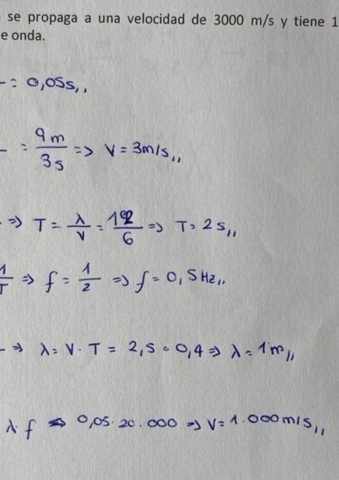 se propaga a una velocidad de 3000 m/s y tiene 1
e onda.
= 0,05s,,
= 9m/3s => V = 3m/s,,
=> T = λ/V = 12/6 => T = 2 s,,
1/T => f = 1/2 => f = 0,5 Hz,,
=> λ = V · T = 2,5 · 0,4 => λ = 1m,,
λ · f => 0,05 · 20.000 => V = 1.000 m/s,,